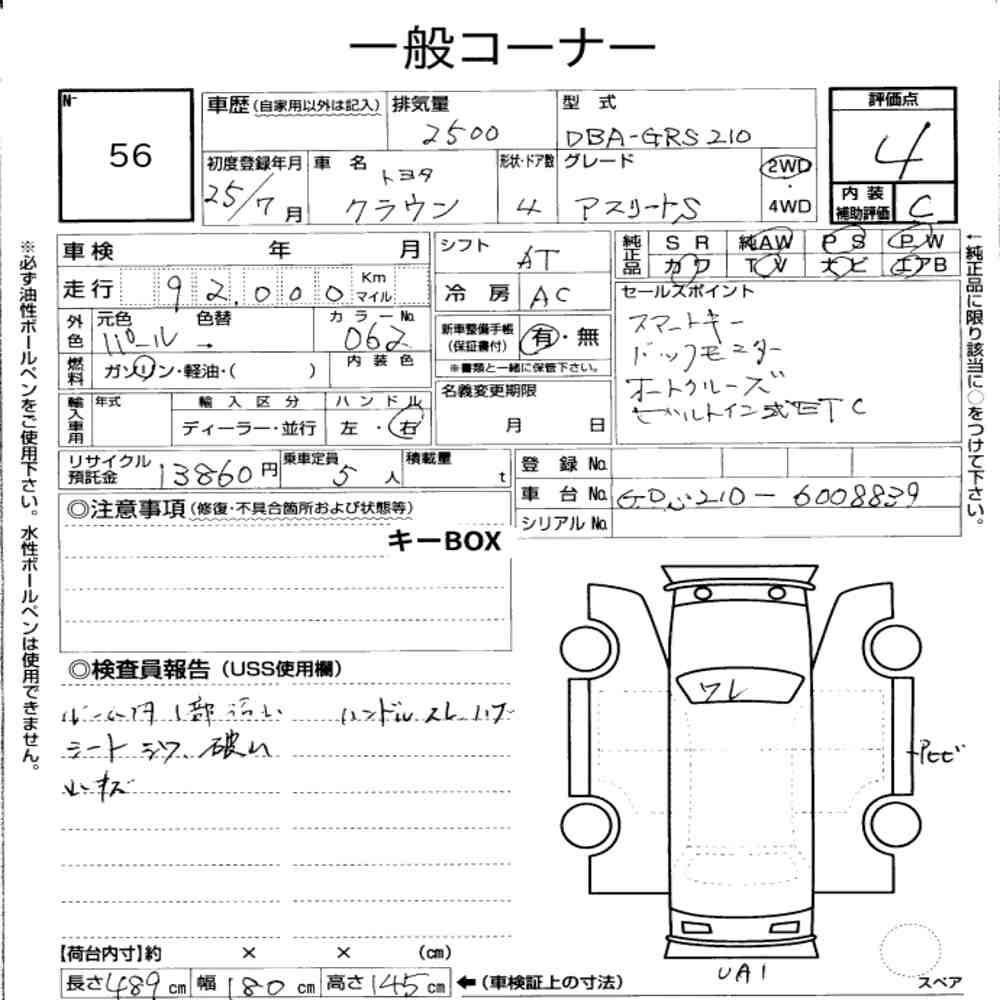 一般コーナー
No
56
車歴(自家用以外は記入)
排気量
2500
型 式
DBA-GRS210
評価点
4
初度登録年月
25/7月
車 名
トヨタ
クラウン
形状・ドア数
4
グレード
アスリートS
2WD
・
4WD
内 装
補助評価
C
車検 年 月
シフト
AT
純正品
SR 純AW PS PW
カワ TV ナビ エアB
走行 92,000 Km
マイル
冷 房 AC
セールスポイント
スマートキー
バックモニター
オートクルーズ
ビルトイン式ETC
外色
元色 色替
パール →
カラーNo.
062
新車整備手帳
(保証書付)
有・無
※書類と一緒に保管下さい。
燃料
ガソリン・軽油・( )
内装色
名義変更期限
月 日
輸入車用
年式
輸入区分
ディーラー・並行
ハンドル
左・右
リサイクル
預託金
13860円
乗車定員
5人
積載量
t
登 録 No.
車 台 No. GRS210-6008839
シリアルNo.
◎注意事項(修復・不具合箇所および状態等)
キーBOX
◎検査員報告(USS使用欄)
ルーム内1部汚れ ハンドルスレ ハゲ
シートシワ、破れ
小キズ
ワレ
Pヒビ
UA1
スペア
【荷台内寸】約 × × (cm)
長さ489cm 幅180cm 高さ145cm ←(車検証上の寸法)
※必ず油性ボールペンをご使用下さい。水性ボールペンは使用できません。
←純正品に限り該当に○をつけて下さい。